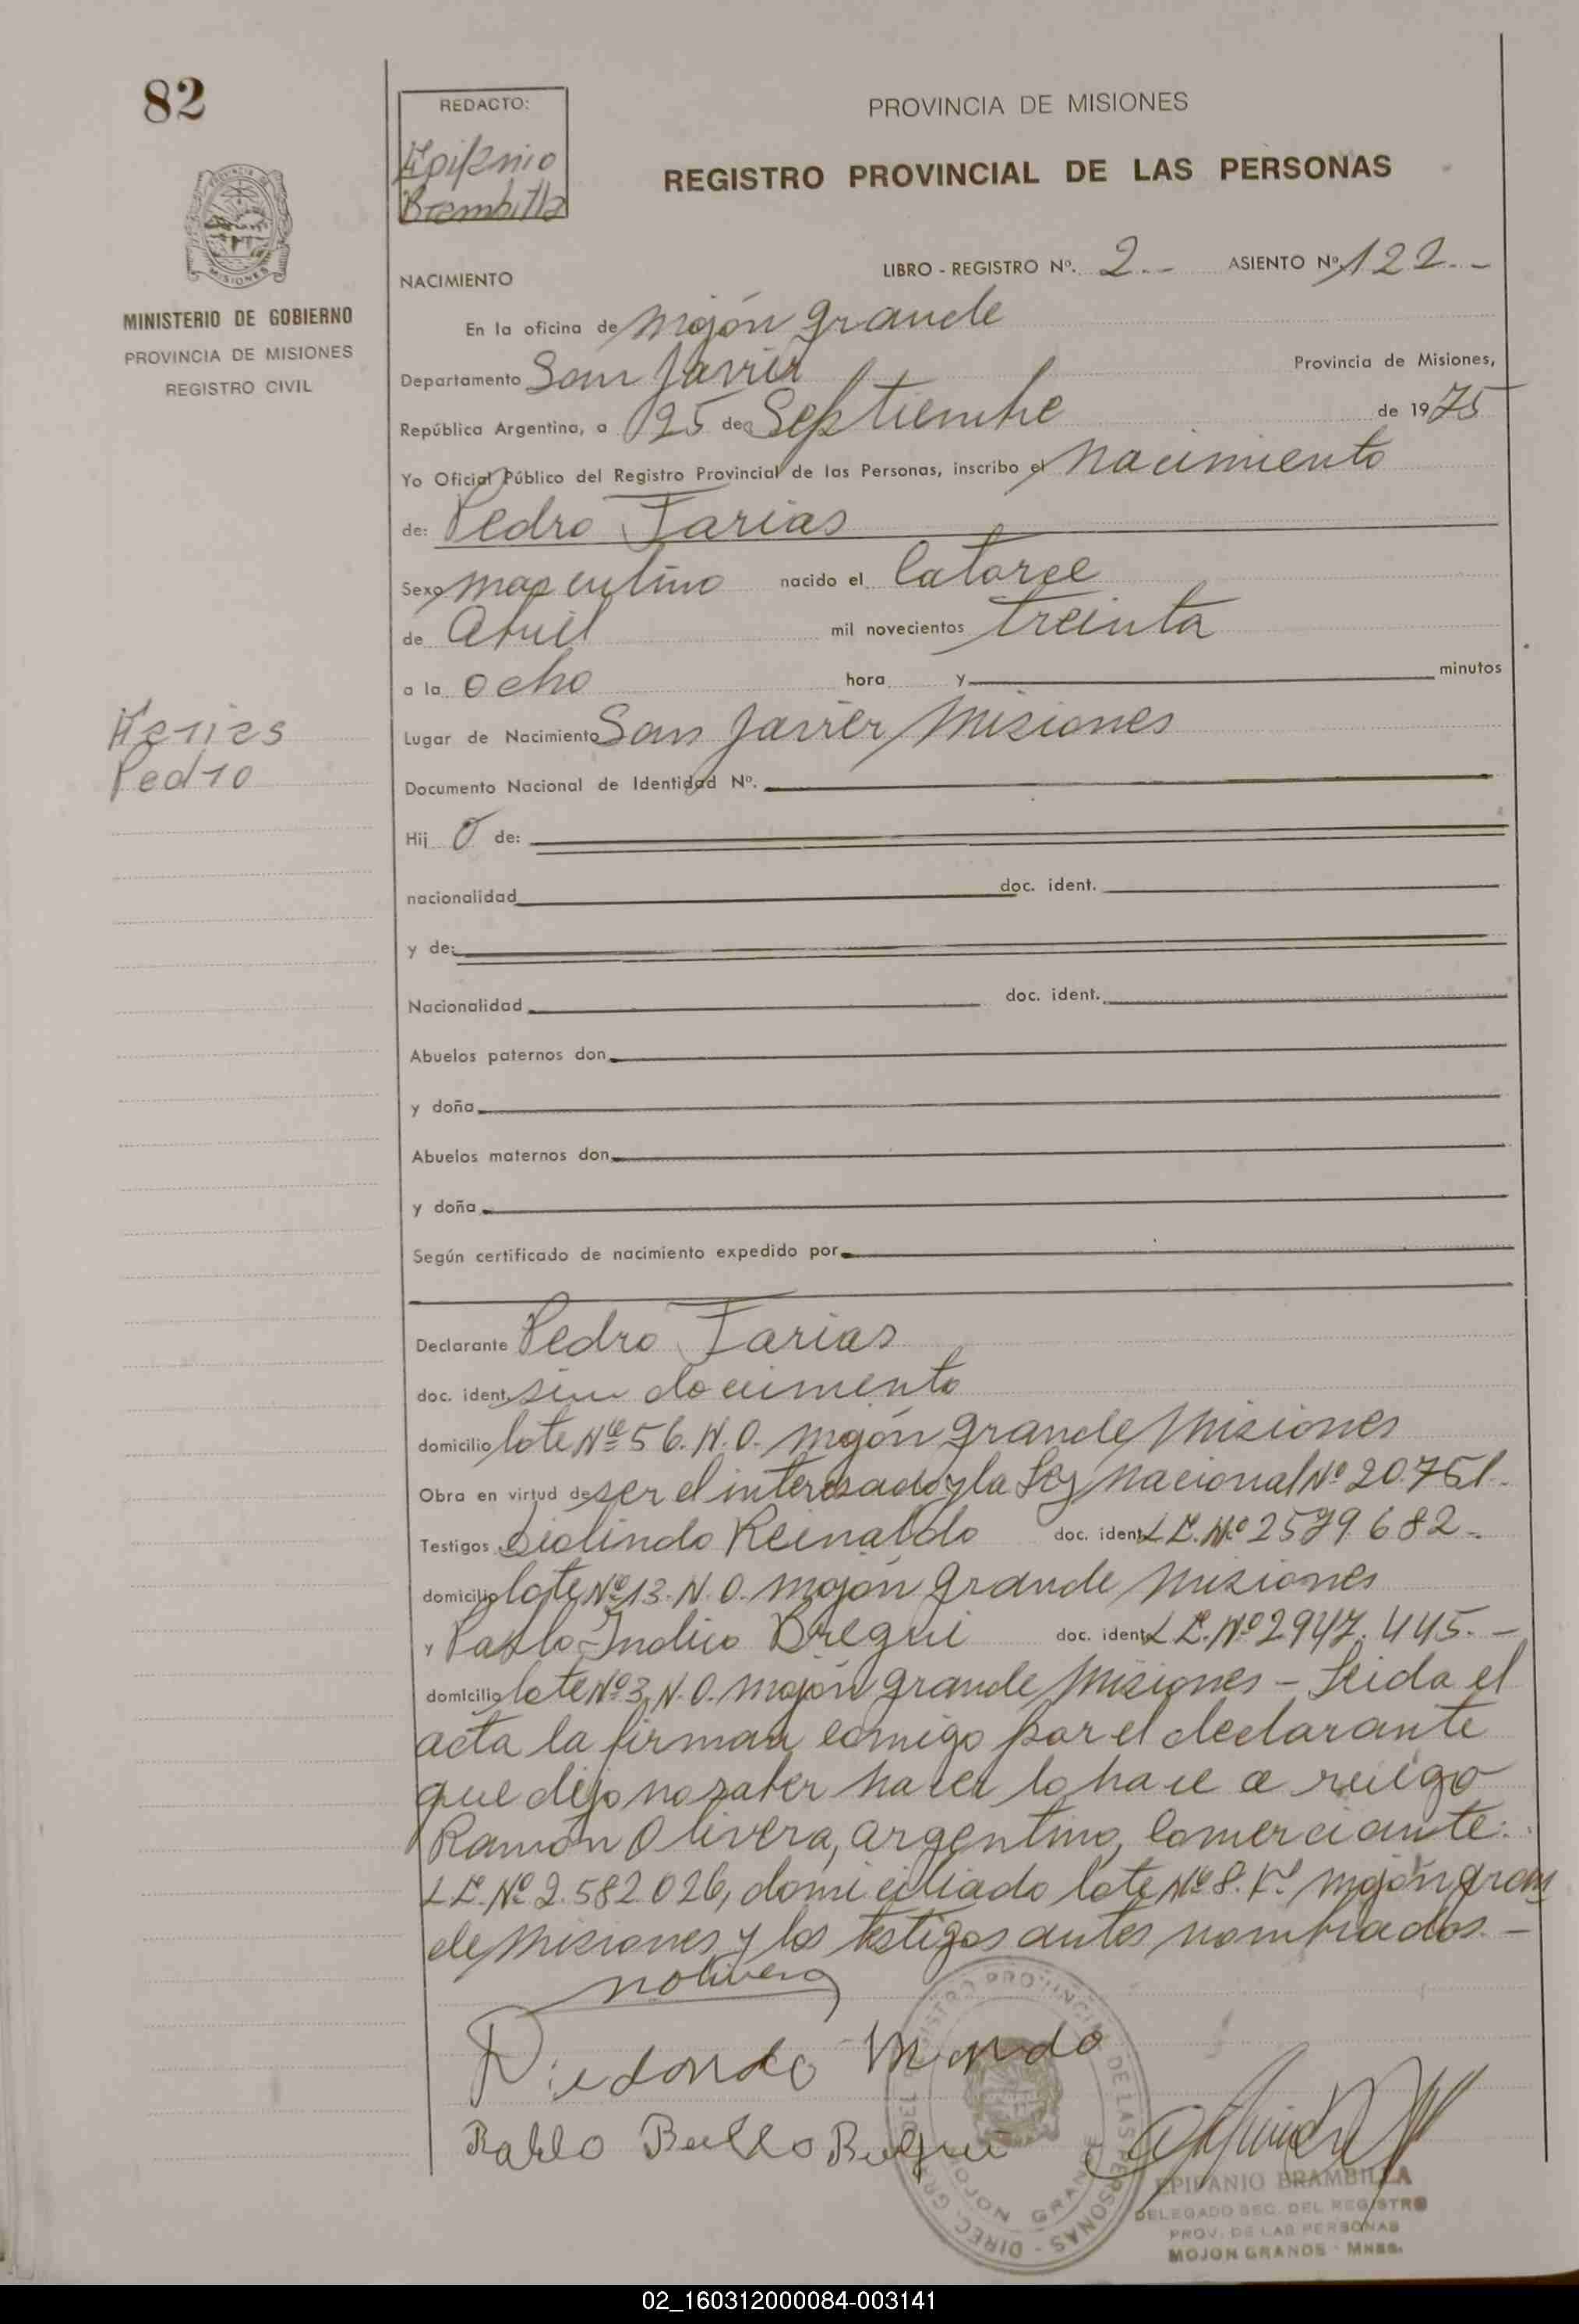 82
REDACTO:
Epifanio
Brambilla
PROVINCIA DE MISIONES
REGISTRO PROVINCIAL DE LAS PERSONAS
MISIONES
MINISTERIO DE GOBIERNO
PROVINCIA DE MISIONES
REGISTRO CIVIL
NACIMIENTO
LIBRO - REGISTRO Nº. 2.- ASIENTO Nº 122.-
En la oficina de Mojón grande
Departamento San Javier Provincia de Misiones,
República Argentina, a 25 de Septiembre de 1975
Yo Oficial Público del Registro Provincial de las Personas, inscribo el Nacimiento
de: Pedro Farias
Sexo masculino nacido el Catorce
de Abril mil novecientos treinta
a la ocho hora y minutos
Farias
Pedro
Lugar de Nacimiento San Javier Misiones
Documento Nacional de Identidad Nº.
Hij o de:
nacionalidad doc. ident.
y de:
Nacionalidad doc. ident.
Abuelos paternos don
y doña
Abuelos maternos don
y doña
Según certificado de nacimiento expedido por
Declarante Pedro Farias
doc. ident. sin documento
domicilio lote Nº 56. N.O. Mojón grande Misiones
Obra en virtud de ser el interesado y la Ley Nacional Nº 20.751.-
Testigos Reinaldo doc. ident. L.E. Nº 2579682.-
domicilio lote Nº 13. N.O. Mojón grande Misiones
y Pablo Indico Bregui doc. ident. L.E. Nº 2947.445.-
domicilio lote Nº 3. N.O. Mojón grande Misiones - Leida el
acta la firman comigo por el declarante
que dijo no saber hacer lo hace a ruego
Ramón Olivera, argentino, comerciante.
L.E. Nº 2.582.026, domiciliado lote Nº 8. Mojón gran
de Misiones y los testigos antes nombrados.-
Pablo
REGISTRO PROVINCIAL DE LAS PERSONAS - DIREC. GRAL. DEL
MOJON GRANDE
EPIFANIO BRAMBILLA
DELEGADO SEC. DEL REGISTRO
PROV. DE LAS PERSONAS
MOJON GRANDE - MNES.
02_160312000084-003141